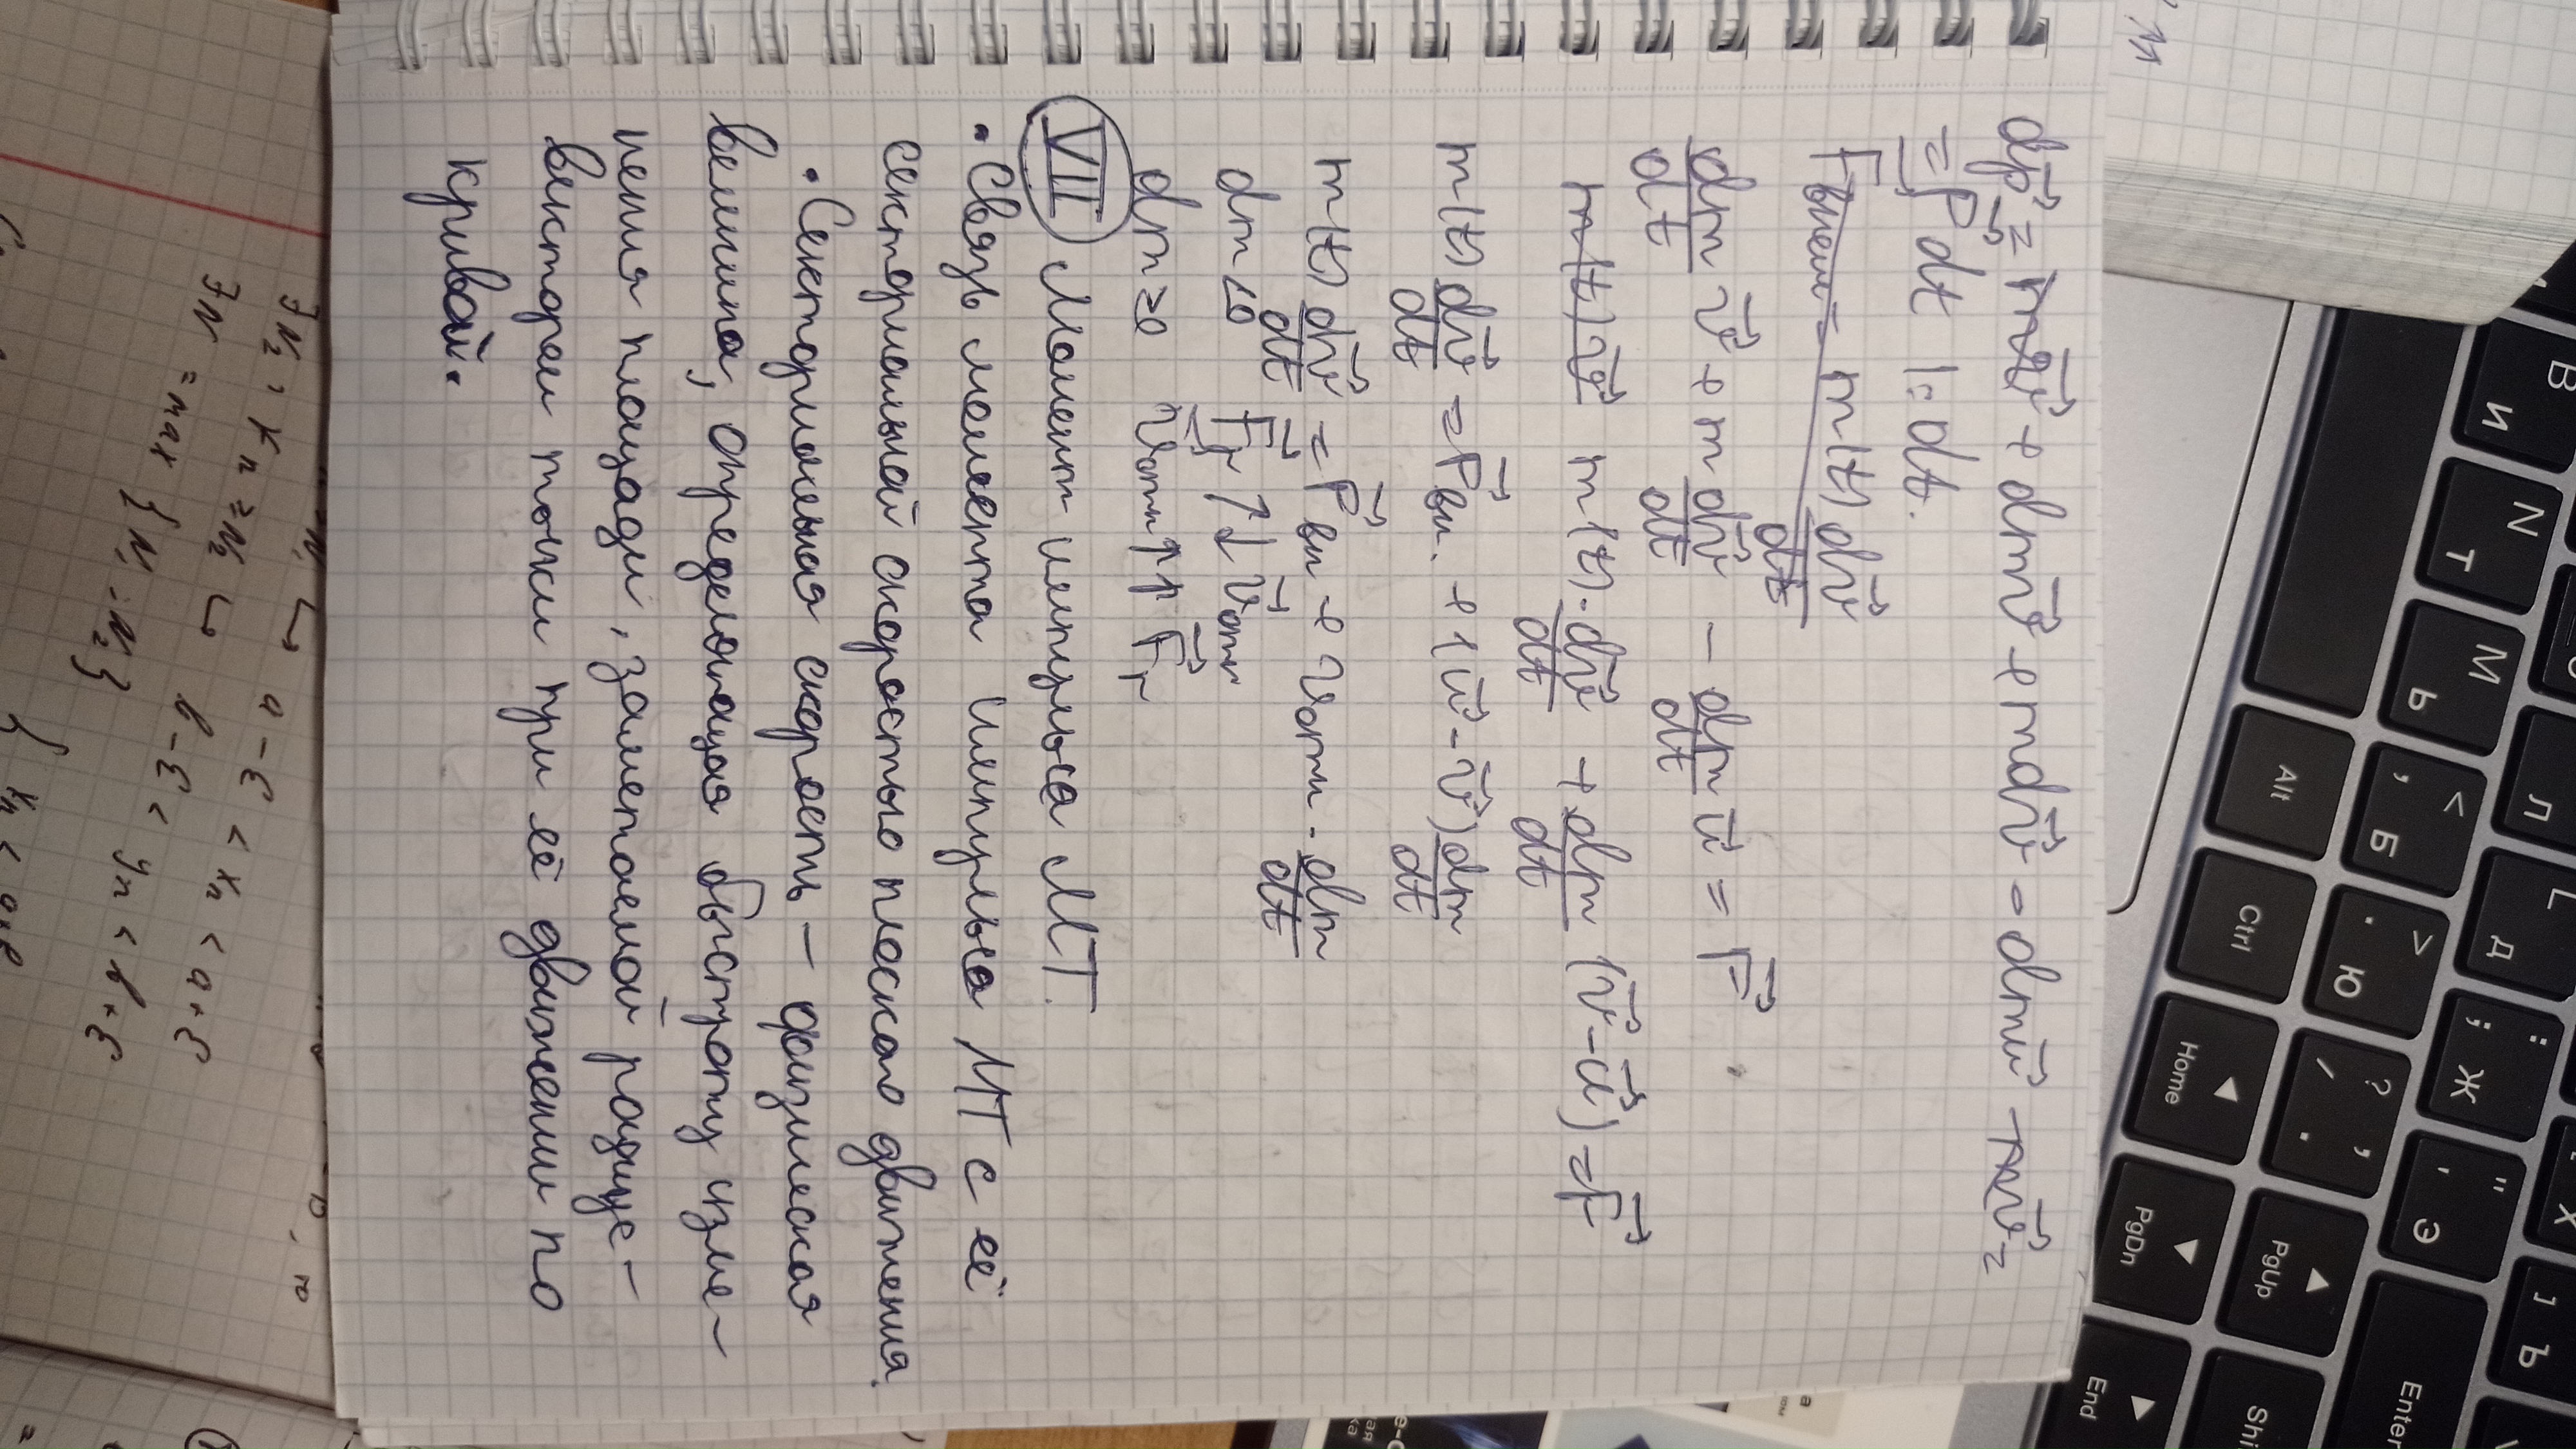 dp⃗ = mv⃗ + dmv⃗ + mdv⃗ - dmu⃗ - mv⃗ =
= F⃗dt |:dt.
F⃗внеш = m(t) dv⃗/dt
dm/dt v⃗ + m dv⃗/dt - dm/dt u⃗ = F⃗
m(t)v⃗ m(t)·dv⃗/dt + dm/dt (v⃗-u⃗) = F⃗
m(t) dv⃗/dt = F⃗вн. + (u⃗-v⃗) dm/dt
m(t) dv⃗/dt = F⃗вн + vотн · dm/dt
dm<0 F⃗r ↑↓ v⃗отн
dm>0 v⃗отн ↑↑ F⃗r
VII Момент импульса МТ.
• Связь момента импульса МТ с её
секториальной скоростью плоского движения.
• Секториальная скорость – физическая
величина, определяющая быстроту изме-
нения площади, заметаемой радиус-
вектором точки при её движении по
кривой.
∃N₂, ∀n≥N₂ ↪ a-ε < xn < a+ε
∃N = max {N₁, N₂} b-ε < yn < b+ε
В И
N Т
M Ь
< , Б
> . Ю
? / , .
Л
L Д
: ; Ж
" ' Э
Х
] Ъ
Alt
Ctrl
Home
PgDn
PgUp
End
Enter
Shi